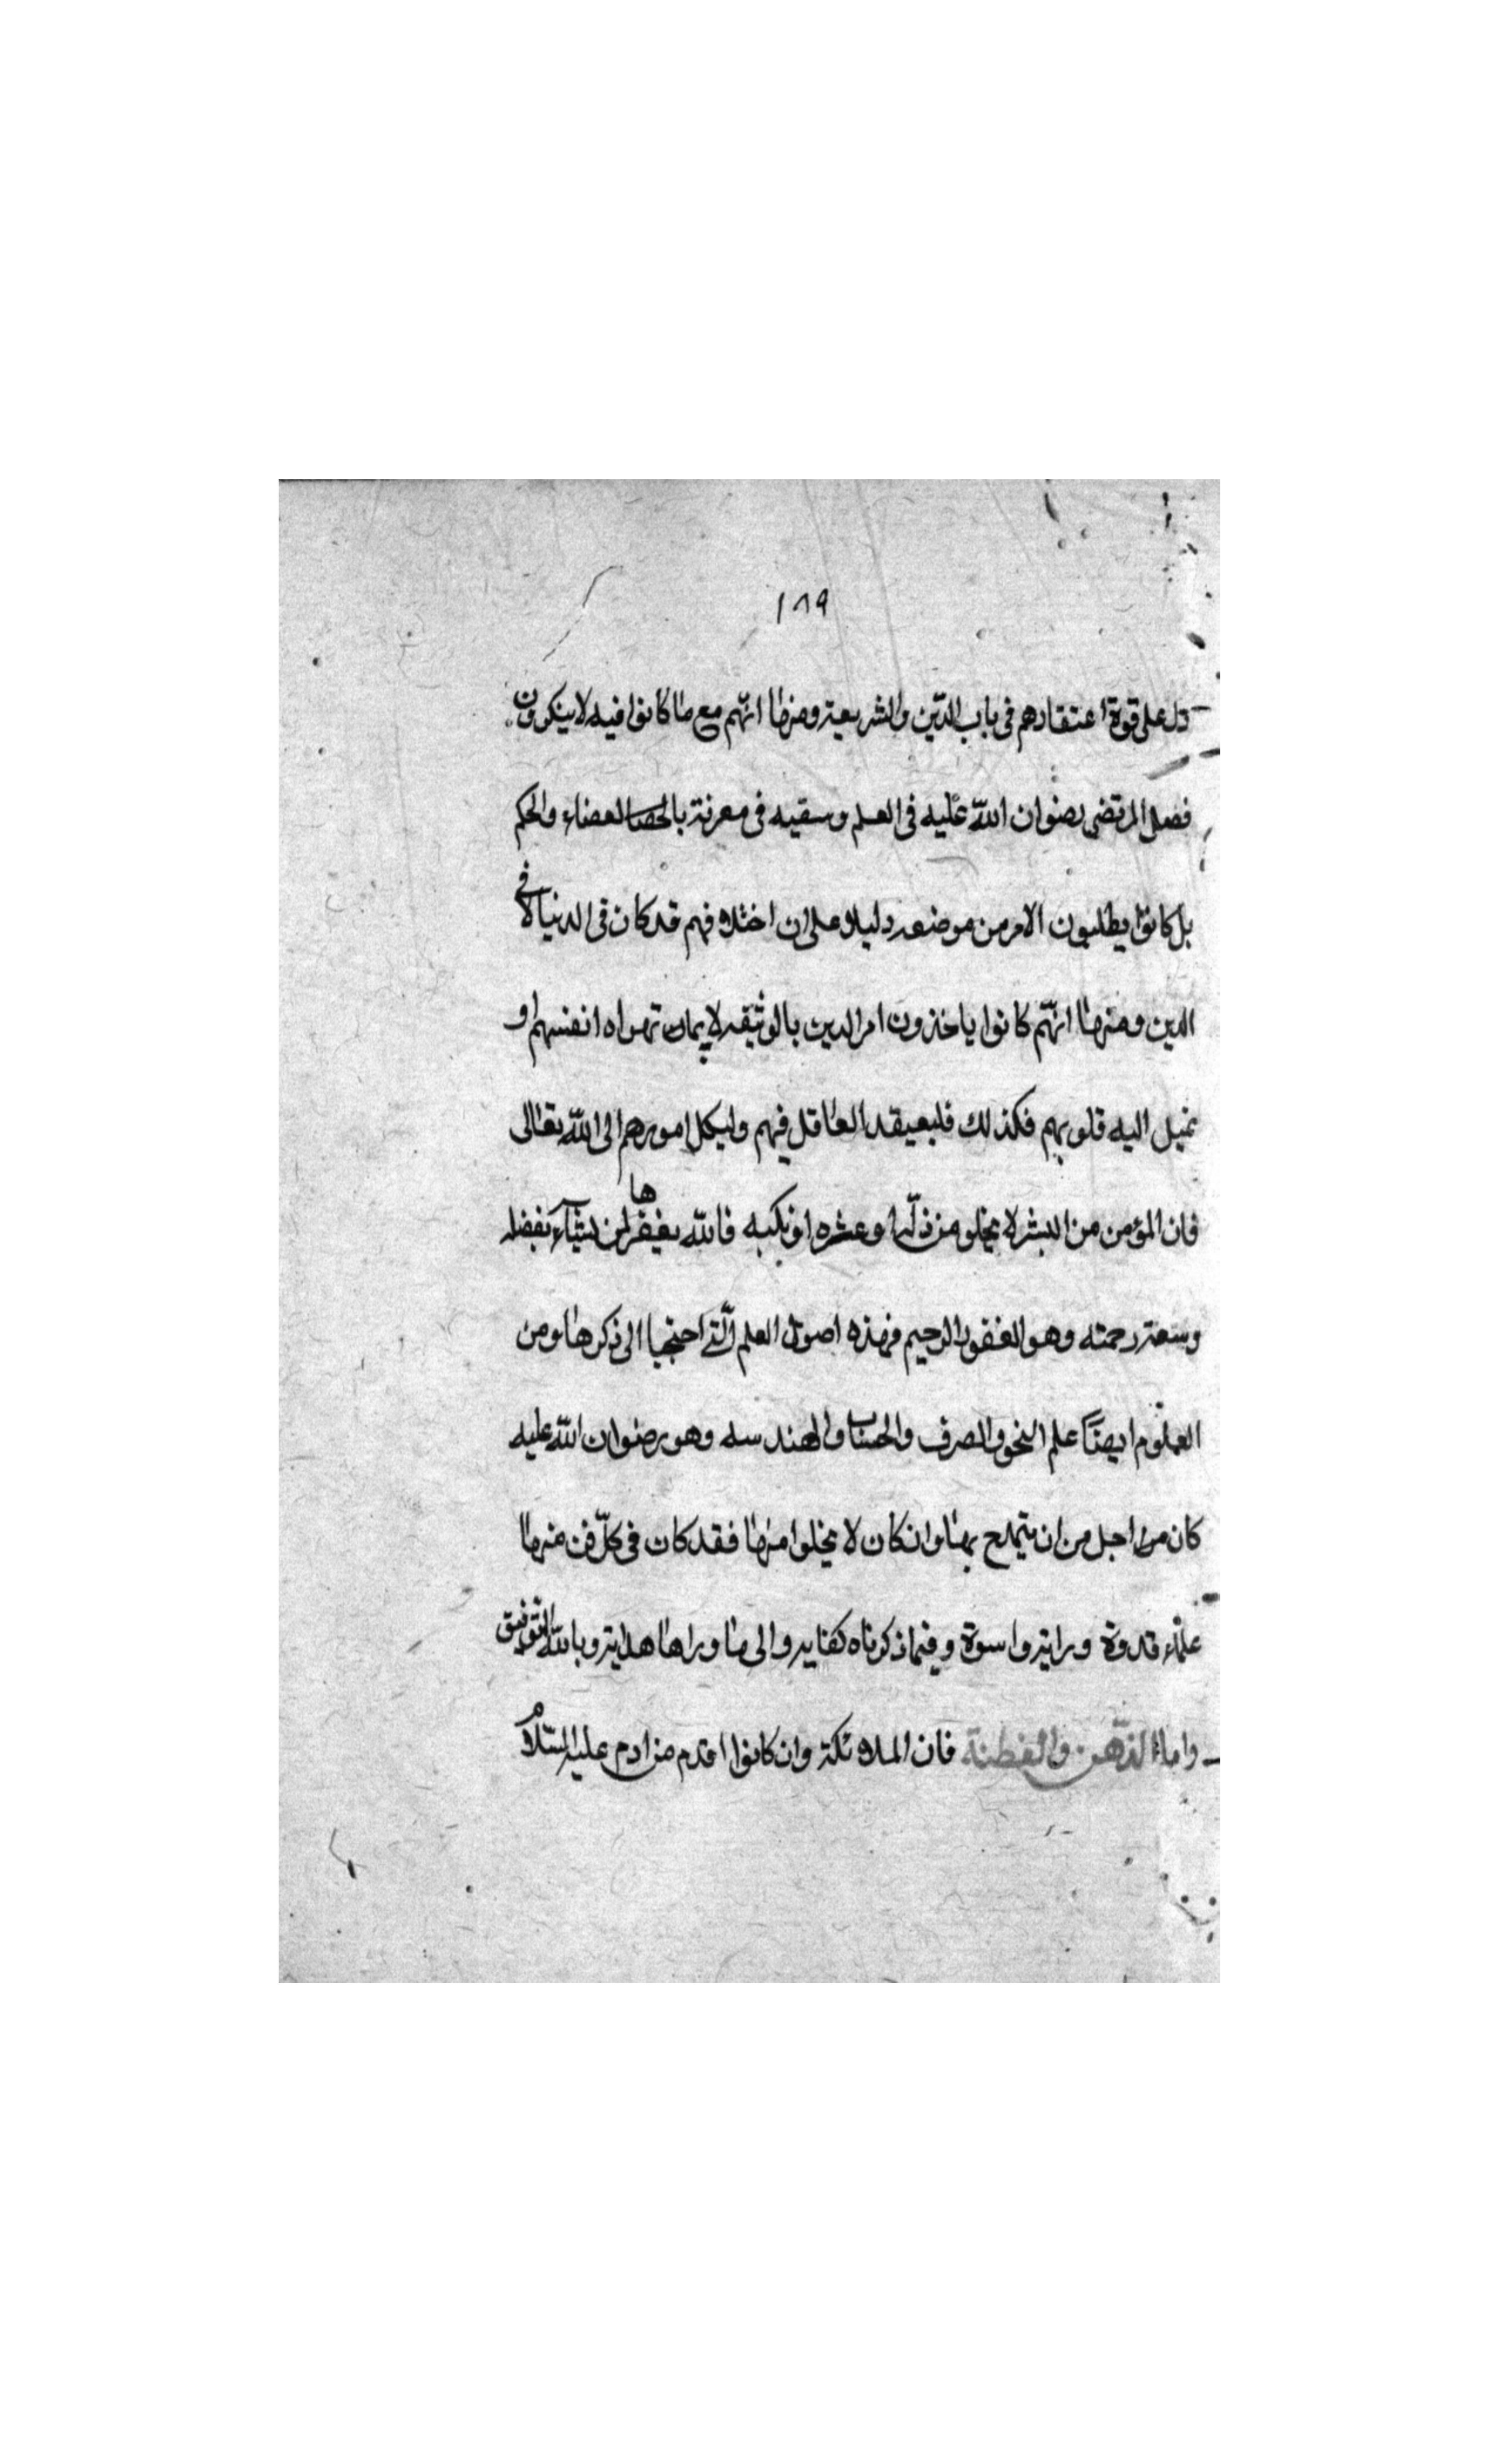 ١٨٩
دل على قوة اعتقادهم فى باب الدّين والشريعة ومنها انّهم مع ما كانوا فيه لا ينكرون
فضل المرتضى رضوان اللّه عليه فى العلم وسقيه فى معرفة القضاء والحكم
بل كانوا يطلبون الامر من موضعه دليلا على ان اختلافهم قد كان فى الدنيا لا فى
الدين ومنها انّهم كانوا ياخذون امر الدين بالوثيقه لا بمان تهواه انفسهم او
تميل اليه قلوبهم فكذلك فليعيقد العاقل فيهم وليكل امورهم الى اللّه تعالى
فان المؤمن من البشر لا يخلو من زلّه او عثره او نكبه فاللّه يغفرها لمن يشآء بفضله
وسعة رحمته وهو الغفور الرحيم فهذه اصول العلم الّتى احتجبا الى ذكرها ومن
العلوم ايضًا علم النحو والصرف والحساب والهندسه وهو رضوان اللّه عليه
كان من اجل من ان يتمدح بها وان كان لا يخلوا منها فقد كان فى كلّ فن منها
علمًا قدوة وراية واسوة وفيما ذكرناه كفاية والى ما وراها هداية وباللّه التوفيق
واما الذّهن والفطنة فان الملائكة وان كانوا اقدم من ادم عليه السّلام